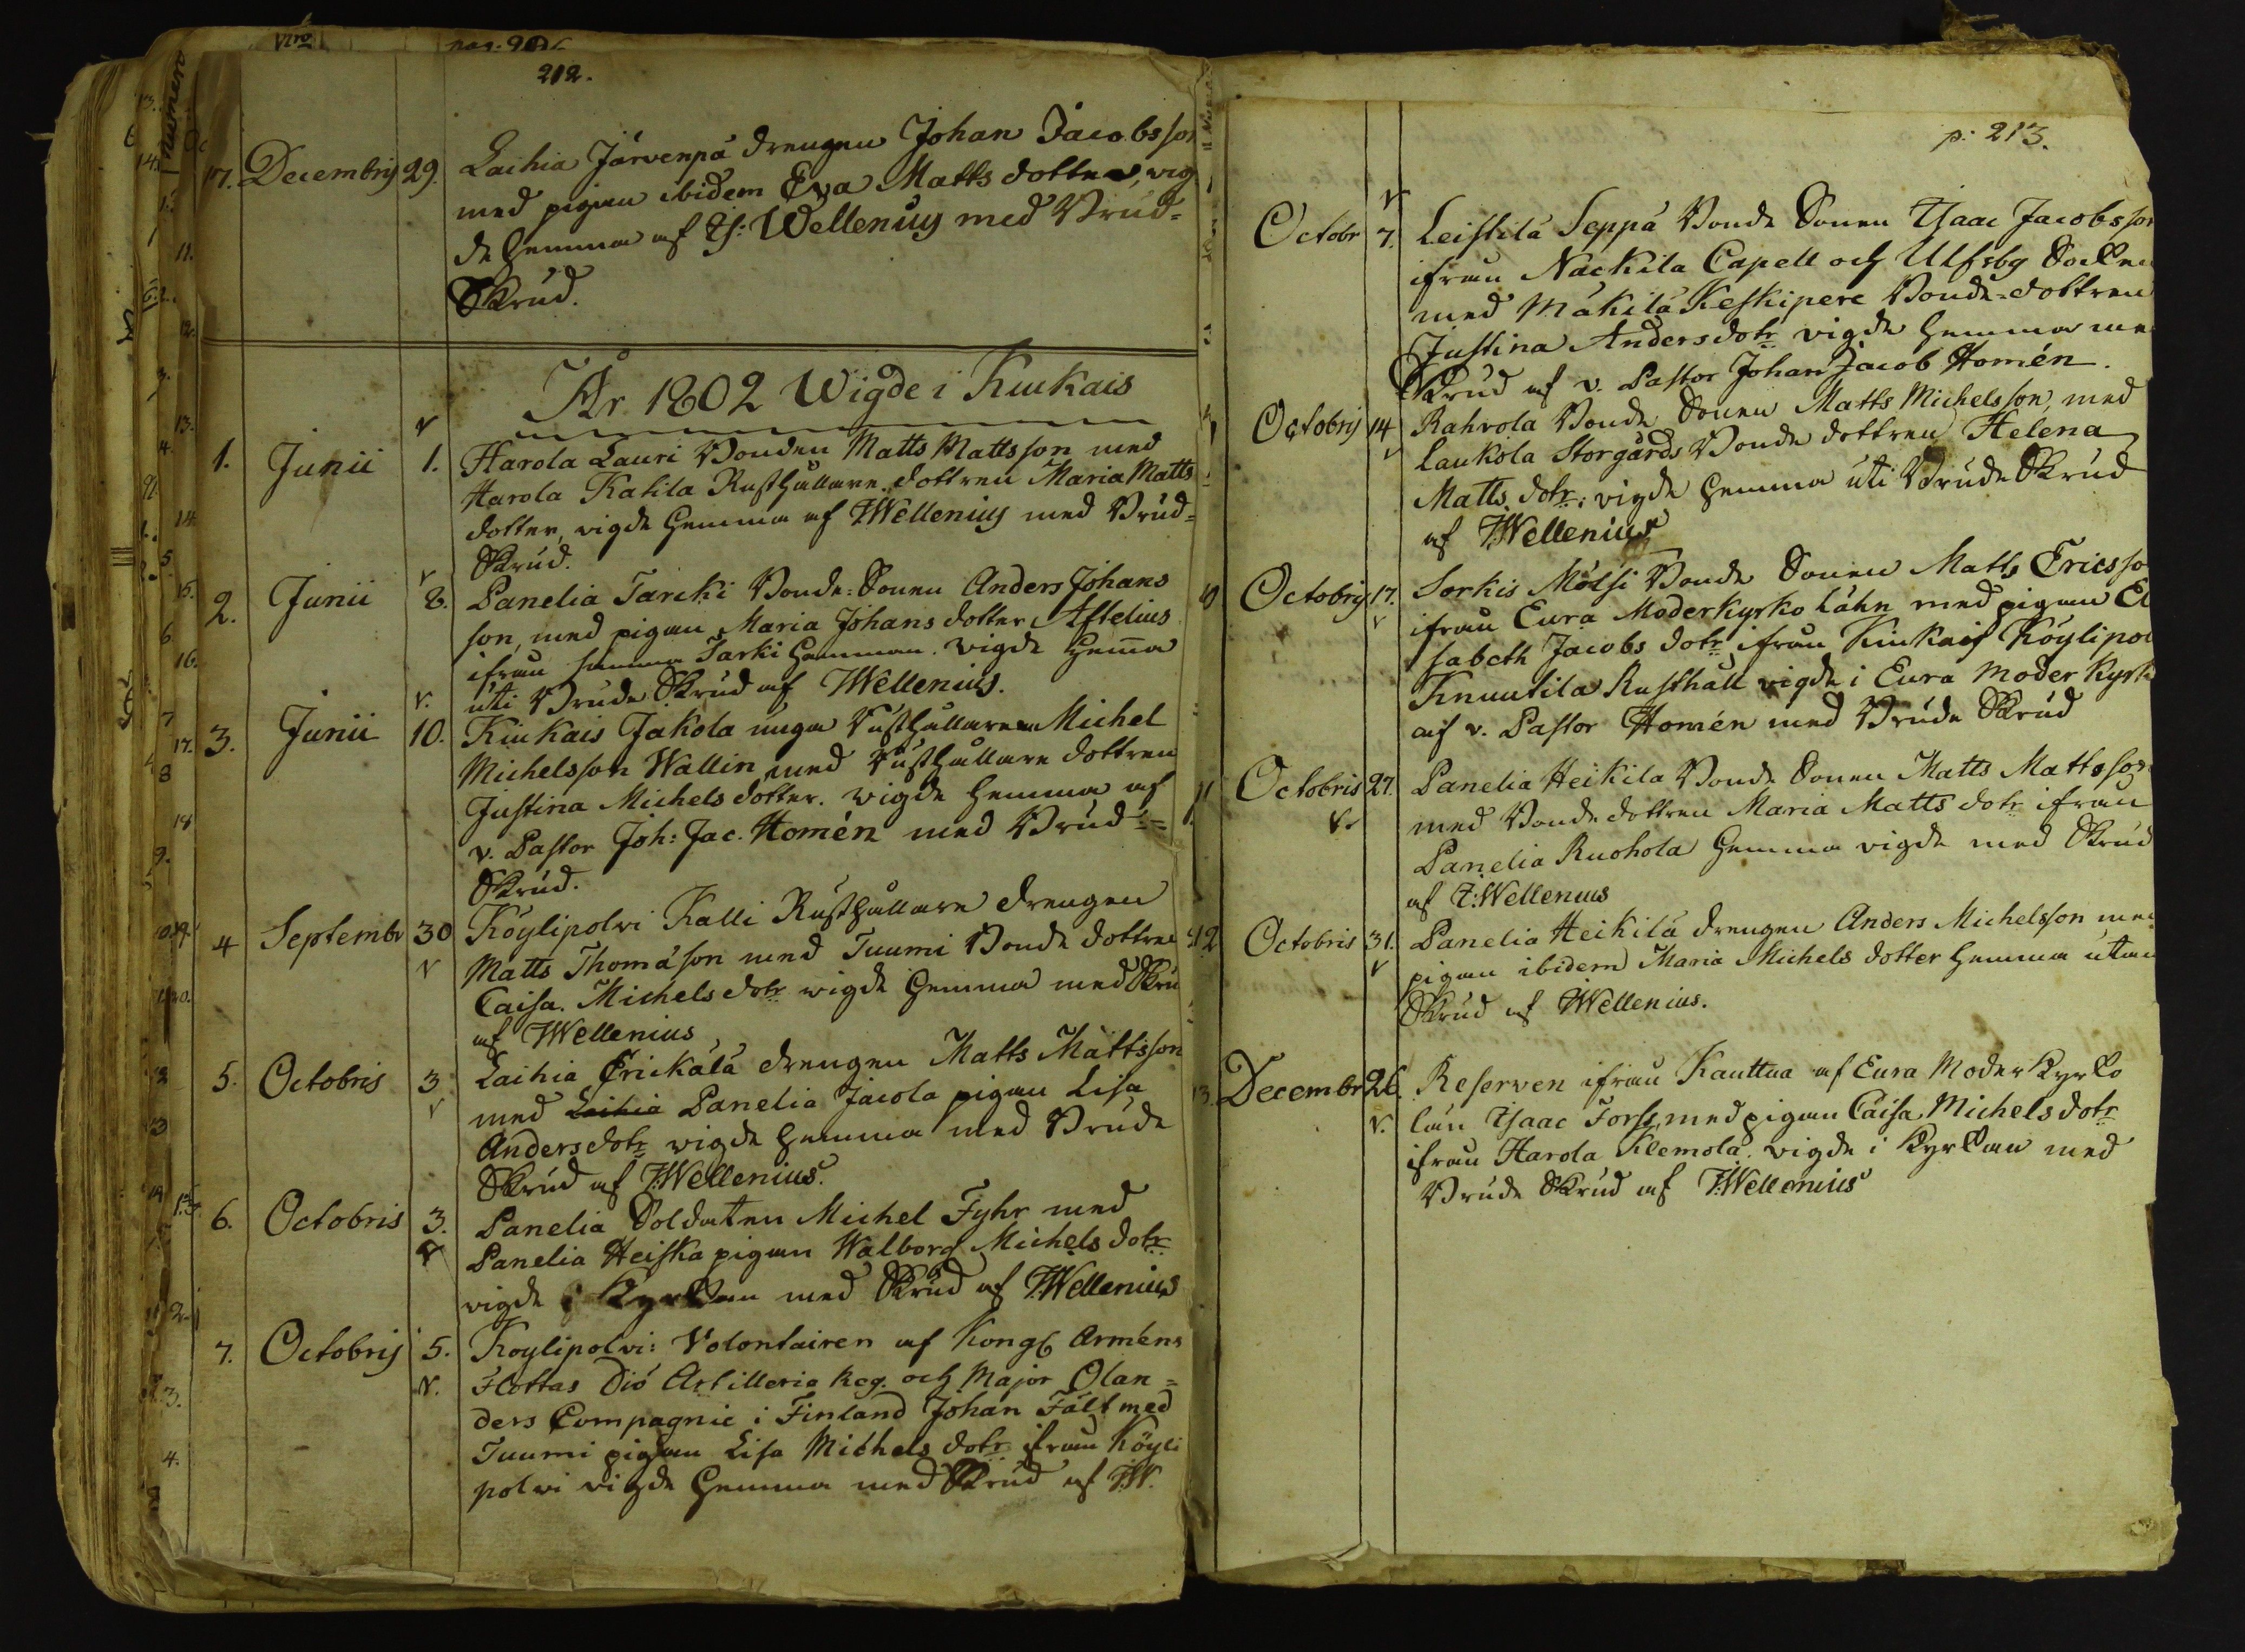 212.
17. Decembris 29. Laihia Järvenpä drengen Johan Jacobsson
med pigan ibidem Eva Matts dotter, vig
de hemma af Js: Wellenius med Brud-
Skrud.
År 1802 Wigde i Kiukais
1. Junii 1. Harola Lauri Bonden Matts Mattsson med
Harola Katila Rusthållare dottren Maria Matts
dotter, vigde hemma af J:Wellenius med Brud-
Skrud.
2. Junii 8. Panelia Tarcki Bonde-Sonen Anders Johans
son, med pigan Maria Johans dotter Aftelius
ifrån samma Tarki hemman. vigde hemma
uti Brude Skrud af J:Wellenius.
3. Junii 10. Kiukais Jakola unga Rusthållaren Michel
Michelsson Wallin med Rusthållare dottren
Justina Michels dotter. vigde hemma af
v. Pastor Joh: Jac. Homén med Brud-
Skrud.
4 Septembr 30 Köylipolvi Kalli Rusthållare drengen
Matts Thomasson med Tuumi Bonde dottren
Caisa Michels dotr vigde hemma med Skru
af J:Wellenius
5. Octobris 3 Laihia Erickälä drengen Matts Mattsson
med Laihia Panelia Jacola pigan Lisa
Andersdotr vigde hemma med Brude
Skrud af J:Wellenius.
6. Octobris 3. Panelia Soldaten Michel Fyhr med
Panelia Heiska pigan Walborg Michels dotr
vigde i Kyrckan med Skrud af J:Wellenius
7. Octobris 5. Köylipolvi: Volontairen af Kongl Arméns
Flottas Artilleria Reg. och Major Olan-
ders Compagnie i Finland Johan Fält med
Tuumi pigan Lisa Michels dotr ifrån Köyli
polvi vigde hemma med Skrud af J:W.
p: 213.
Octobr 7. Leistilä Seppä Bonde Sonen Isaac Jacobsson
ifrån Nackila Capell och Ulfsby Socken
med Mäkilä Keskipere Bonde-dottren
Justina Andersdotr vigde hemma me
Skrud af v. Pastor Johan Jacob Homén.
Octobris 14 Rahvola Bonde Sonen Matts Michelsson, med
Laukola Storgårds Bonde dottren Helena
Matts dotr: vigde hemma uti Brude Skrud
af J:Wellenius
Octobris 17. Sorkis Mölsi Bonde Sonen Matts Ericsso
ifrån Eura Moderkyrko Lähn med pigan El
sabeth Jacobs dotr ifrån Kiukais Köylipol
Knuutila Rusthåll vigde i Eura Moder Kyrk
af v. Pastor Homén med Brude Skrud
11 Octobris 27. Panelia Heikila Bonde Sonen Matts Mattsson
med Bonde dottren Maria Matts dotr ifrån
Panelia Ruohola hemma vigde med Skrud
af J:Wellenius
12 Octobris 31. Panelia Heikilä drengen Anders Michelsson med
pigan ibidem Maria Michels dotter hemma utan
Skrud af J:Wellenius.
13. Decembr 26. Reserven ifrån Kauttua af Eura Moder Kyrko
län Isaac Forss, med pigan Caisa Michels dotr
ifrån Harola Klemola. vigde i Kyrckan med
Brude Skrud af J:Wellenius